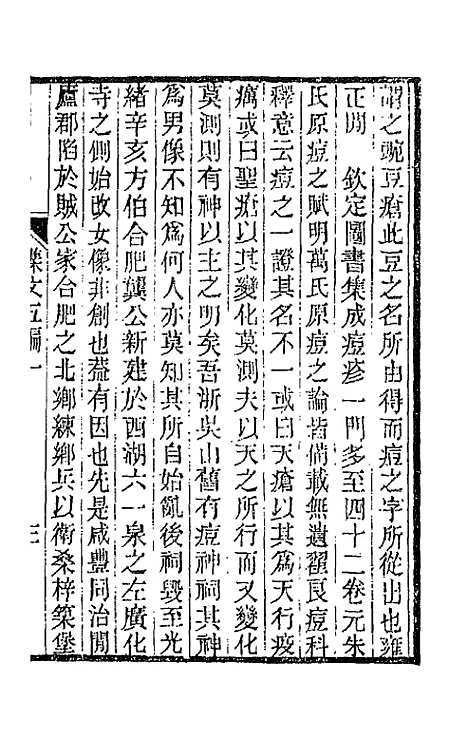 謂之豌豆瘡此豆之名所由得而痘之字所從出也雍
正閒　欽定圖書集成痘疹一門多至四十二卷元朱
氏原痘之賦明萬氏原痘之論皆備載無遺翟良痘科
釋意云痘之一證其名不一或曰天瘡以其為天行疫
癘或曰聖瘡以其變化莫測夫以天之所行而又變化
莫測則有神以主之明矣吾浙吳山舊有痘神祠其神
為男像不知為何人亦莫知其所自始亂後祠毀至光
緒辛亥方伯合肥龔公新建於西湖六一泉之左廣化
寺之側始改女像非創也蓋有因也先是咸豐同治閒
廬郡陷於賊公家合肥之北鄉練鄉兵以衛桑梓築堡
襍文五編一
三